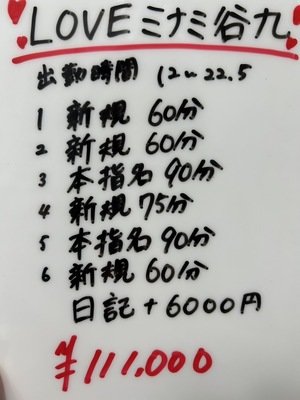 LOVEミナミ谷九
出勤時間 12〜22.5
1 新規 60分
2 新規 60分
3 本指名 90分
4 新規 75分
5 本指名 90分
6 新規 60分
日記 + 6000円
¥111.000